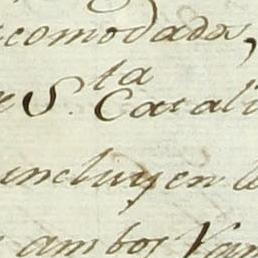 comodadas,
S.ta Catali
incluyen
ambos